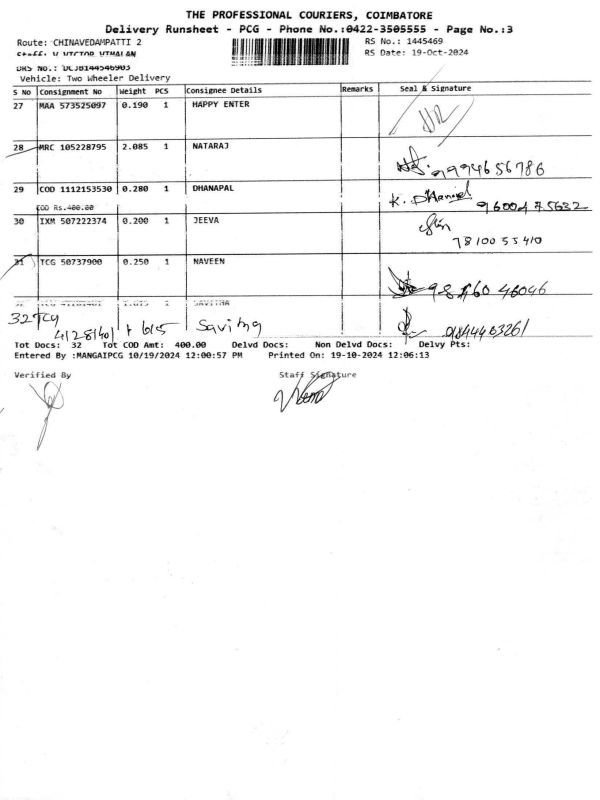 THE PROFESSIONAL COURIERS, COIMBATORE
Delivery Runsheet - PCG - Phone No.:0422-3505555 - Page No.:3
Route: CHINAVEDAMPATTI 2
RS No.: 1445469
Staff: V VICTOR VIMALAN
RS Date: 19-Oct-2024
DRS No.: DCJB144546903
Vehicle: Two Wheeler Delivery
S No Consignment No Weight PCS Consignee Details Remarks Seal & Signature
27 MAA 573525097 0.190 1 HAPPY ENTER
28 MRC 105228795 2.085 1 NATARAJ
9994656786
29 COD 1112153530 0.280 1 DHANAPAL
COD Rs.400.00
K. 9600475632
30 IXM 507222374 0.200 1 JEEVA
7810055410
31 TCG 50737900 0.250 1 NAVEEN
46046
32 TCG 41281401 1.615 1 SAVITHA
32 TCG
41281401 1.615 Savitha
9844463261
Tot Docs: 32 Tot COD Amt: 400.00 Delvd Docs: Non Delvd Docs: Delvy Pts:
Entered By :MANGAIPCG 10/19/2024 12:00:57 PM Printed On: 19-10-2024 12:06:13
Verified By Staff Signature